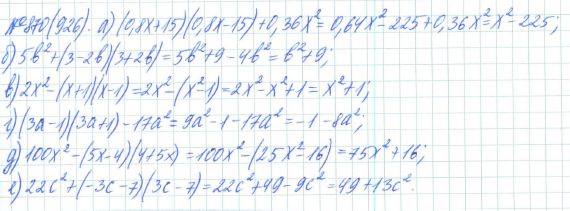 №870(926). а) (0,8x+15)(0,8x-15)+0,36x²=0,64x²-225+0,36x²=x²-225;
б) 5b²+(3-2b)(3+2b)=5b²+9-4b²=b²+9;
в) 2x²-(x+1)(x-1)=2x²-(x²-1)=2x²-x²+1=x²+1;
г) (3a-1)(3a+1)-17a²=9a²-1-17a²=-1-8a²;
д) 100x²-(5x-4)(4+5x)=100x²-(25x²-16)=75x²+16;
е) 22c²+(-3c-7)(3c-7)=22c²+49-9c²=49+13c².